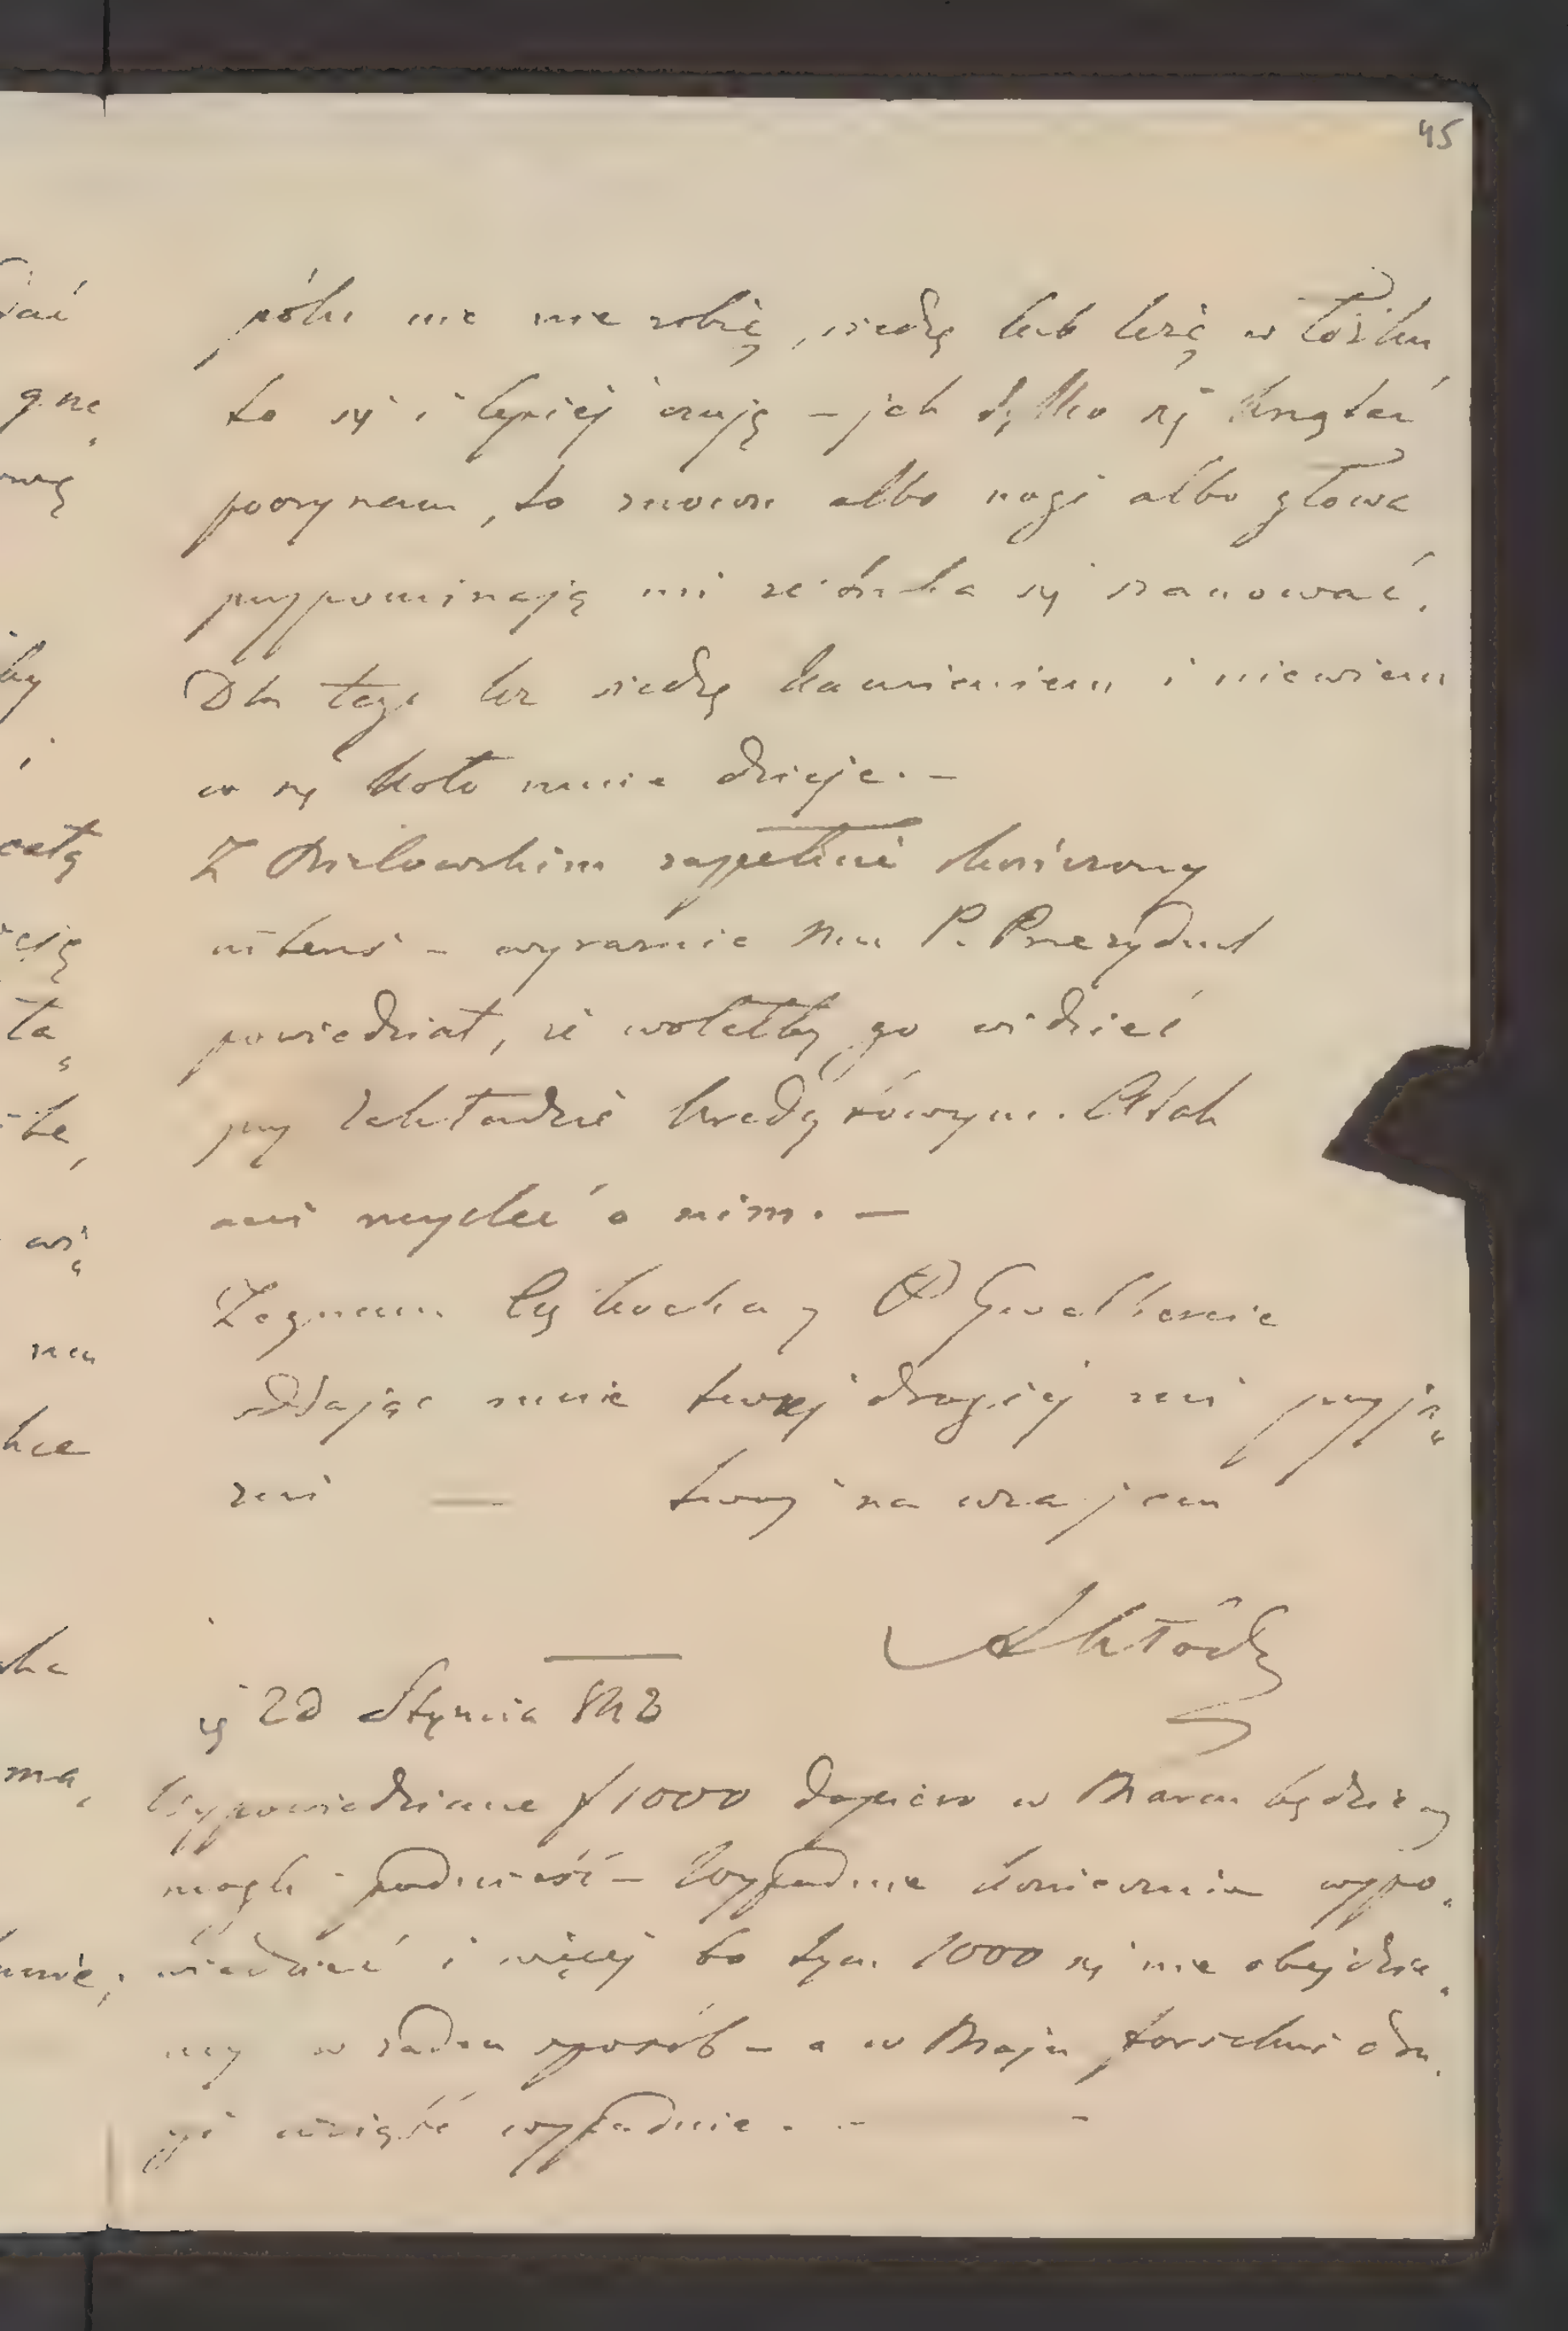 45
póki nic nie robię, siedzę lub leżę w łóżku
to się i lepiej czuję – jak tylko się krzątać
poczynam, to znowu albo nogi albo głowa
przypominają mi że trzeba się szanować.
Dla tego też siedzę kamieniem i niewiem
co się koło mnie dzieje. –
Z Bielowskim zupełnie skończony
interes – wyraznie mu P. Prezydent
powiedział, że wolałby go widzieć
przy Zakładzie kredytowym. A tak
ani myśleć o nim. –
Żegnam Cię kochany Gwalbercie
oddając mnie twojej drogiej mi przyja„
zni — twoj na wzajem
Kłodz
23 Stycznia
Wypowiedziane f 1000 dopiero w Marcu będziemy
mogli podnieść – Wypadnie koniecznie wypo„
wiedzieć i więcej bo tym 1000 się nie obejdzie„
my w żaden sposób – a w Maju forschus dru„
gi wziąść wypadnie. –